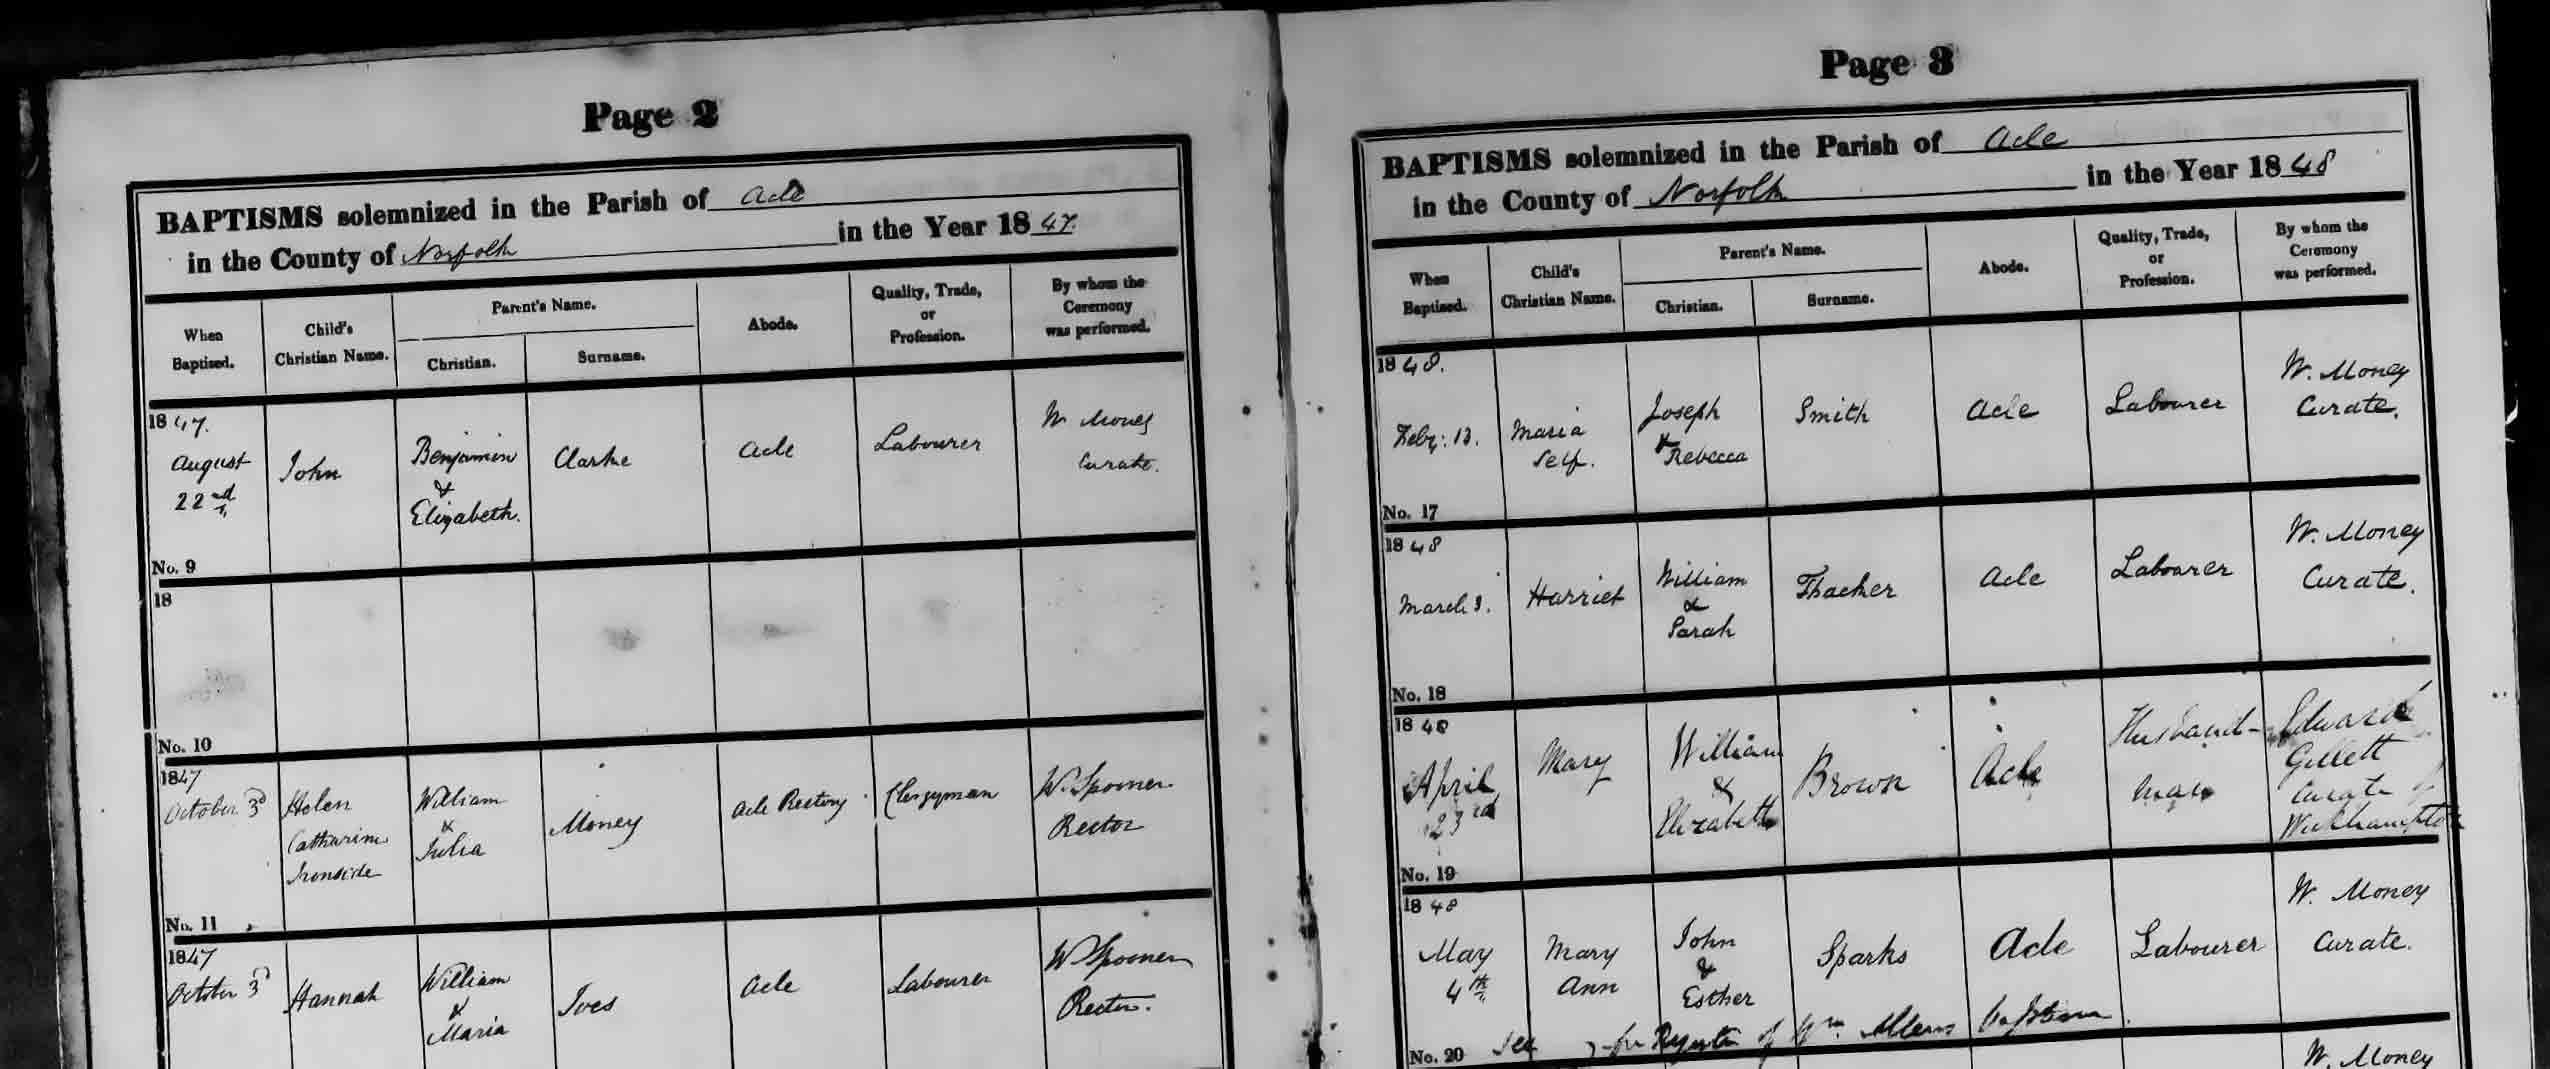 Page 2
BAPTISMS solemnized in the Parish of Acle
in the County of Norfolk in the Year 1847.
When Baptised.
Child's Christian Name.
Parent's Name.
Christian.
Surname.
Abode.
Quality, Trade, or Profession.
By whom the Ceremony was performed.
1847.
August
22nd
No. 9
John
Benjamin
&
Elizabeth.
Clarke
Acle
Labourer
W Money
Curate.
18
No. 10
1847
October 3d
No. 11
Helen
Catharine
Ironside
William
&
Julia
Money
Acle Rectory
Clergyman
W. Spooner
Rector
1847
October 3d
Hannah
William
&
Maria
Ives
Acle
Labourer
W Spooner
Rector.
Page 3
BAPTISMS solemnized in the Parish of Acle
in the County of Norfolk in the Year 1848
When Baptised.
Child's Christian Name.
Parent's Name.
Christian.
Surname.
Abode.
Quality, Trade, or Profession.
By whom the Ceremony was performed.
1848.
Feby: 13.
No. 17
Maria
Self.
Joseph
&
Rebecca
Smith
Acle
Labourer
W. Money
Curate.
1848
March
No. 18
Harriet
William
&
Sarah
Thacker
Acle
Labourer
W. Money
Curate.
1848
April
23rd
No. 19
Mary
William
&
Elizabeth
Brown
Acle
Husband-
man
Edward
Gillett
Curate of
Wickhampton
1848
May
4th
No. 20
Mary
Ann
John
&
Esther
Sparks
Acle
Labourer
W. Money
Curate.
See for of Wm. Allens baptism
W. Money